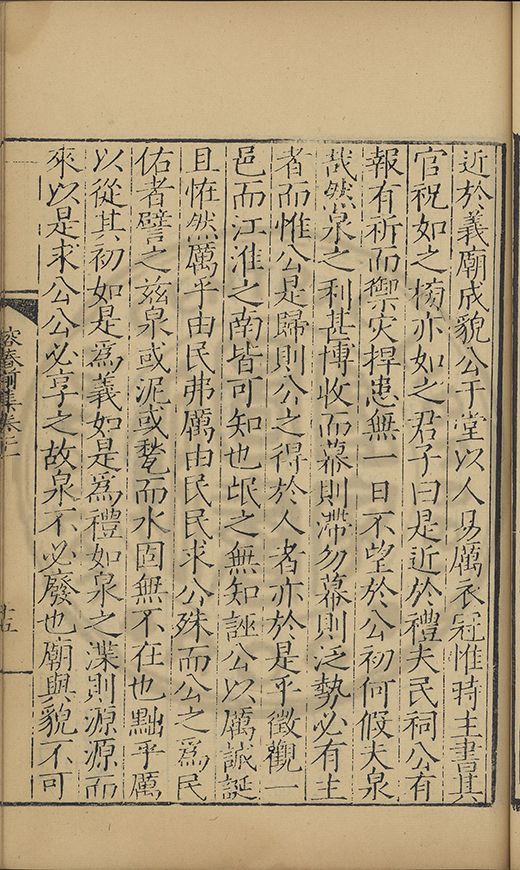 近於義廟成貌公于堂以人易厲衣冠惟時主書其
官祝如之榜亦如之君子曰是近於禮夫民祠公有
報有祈而禦灾捍患無一日不望於公初何假夫泉
哉然泉之利甚博收而幕則滯勿幕則泛勢必有主
者而惟公是歸則公之得於人者亦於是乎徵觀一
邑而江淮之南皆可知也氓之無知誣公以厲誠誕
且恠然厲乎由民弗厲由民民求公殊而公之為民
佑者譬之茲泉或泥或甃而水固無不在也黜乎厲
以從其初如是為義如是為禮如泉之渫則源源而
來以是求公公必享之故泉不必廢也廟與貌不可
容春前集卷二
十五